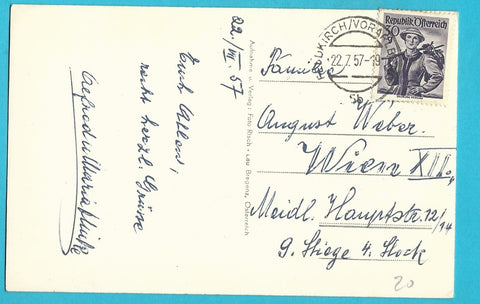 22./VII. 57
Euch Allen,
recht herzl. Grüsse
Aufnahme u. Verlag: Foto Risch-Lau Bregenz, Österreich
KIRCH/VORARLBG
22.7.57-19
Republik Österreich
Familie
August Weber.
Wien XII.,
Meidl. Hauptstr. 12/14
9. Stiege 4. Stock
20